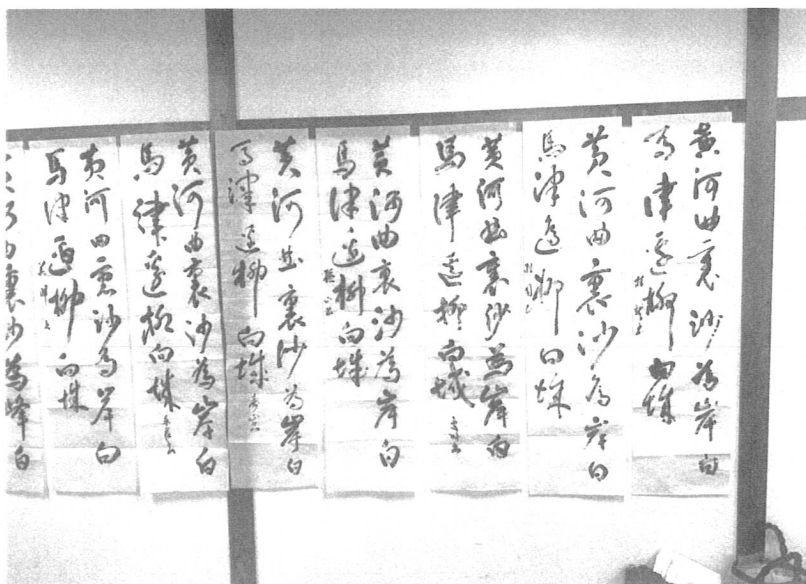 黄河曲裏沙為岸白
馬津邊柳向城
黄河曲裏沙為岸白
馬津邊柳向城
黄河曲裏沙為岸白
馬津邊柳向城
黄河曲裏沙為岸白
馬津邊柳向城
黄河曲裏沙為岸白
馬津邊柳向城
黄河曲裏沙為岸白
馬津邊柳向城
黄河曲裏沙為岸白
馬津邊柳向城
河曲裏沙為岸白